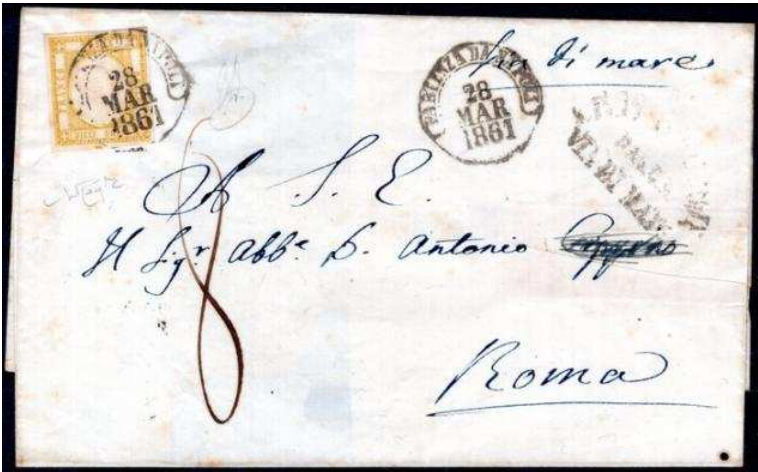 PARTENZA DA NAPOLI
28
MAR
1861
PARTENZA DA NAPOLI
28
MAR
1861
via di mare
VIA DI MARE
8
A S. E.
Il Sigr Abbe D. Antonio
Roma